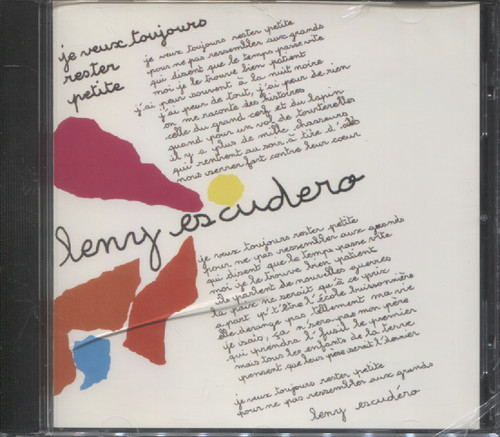 je veux toujours
rester
petite
je veux toujours rester petite
pour ne pas ressembler aux grands
qui disent que le temps passe vite
moi je le trouve bien patient
j'ai peur souvent à la nuit noire
j'ai peur de tout, j'ai peur de rien
on me raconte des histoires
celle du grand cerf et du lapin
quand pour un vol de tourterelles
il y a plus de mille chasseurs
qui rentrent au soir à tire d'ailes
nous serrer fort contre leur cœur
leny escudero
je veux toujours rester petite
pour ne pas ressembler aux grands
qui disent que le temps passe vite
moi je le trouve bien patient
ils parlent de nouvelles guerres
la paix ne serait qu'à ce prix
à part qu't'être l'école buissonnière
elle dérange pas tellement ma vie
je sais, ça n'sera pas mon père
qui prendra l'fusil le premier
mais tous les enfants de la terre
pensent que leur père serait l'dernier
je veux toujours rester petite
pour ne pas ressembler aux grands
leny escudéro